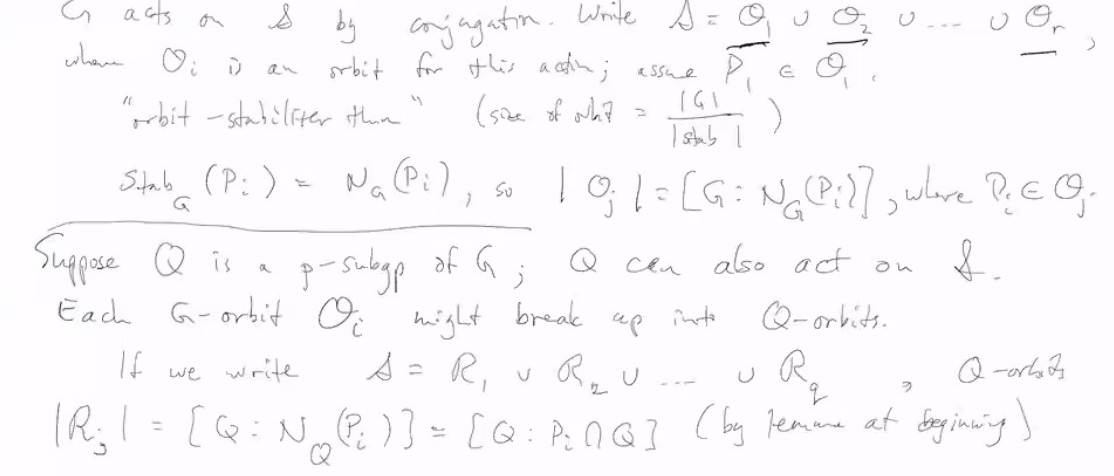 G acts on 𝒮 by conjugation. Write 𝒮 = 𝒪₁ ∪ 𝒪₂ ∪ ... ∪ 𝒪ᵣ,
where 𝒪ᵢ is an orbit for this action; assume P₁ ∈ 𝒪₁.
"orbit-stabilizer thm" (size of orbit = |G| / |stab|)
Stab_G (Pᵢ) = N_G(Pᵢ), so |𝒪ⱼ| = [G : N_G(Pᵢ)], where Pᵢ ∈ 𝒪ⱼ.
Suppose Q is a p-subgp of G; Q can also act on 𝒮.
Each G-orbit 𝒪ᵢ might break up into Q-orbits.
If we write 𝒮 = R₁ ∪ R₂ ∪ ... ∪ R_q, Q-orbits
|Rⱼ| = [Q : N_Q(Pᵢ)] = [Q : Pᵢ ∩ Q] (by lemma at beginning)